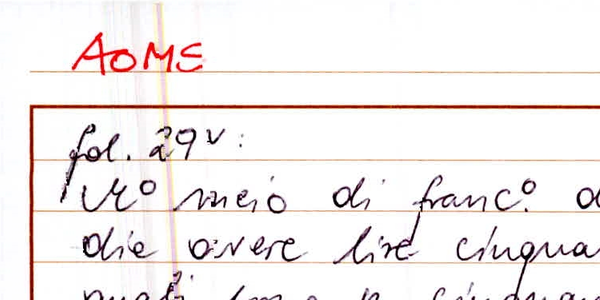 AOMS
fol. 29v:
Mº meio di francº. d
die avere lire cinqua